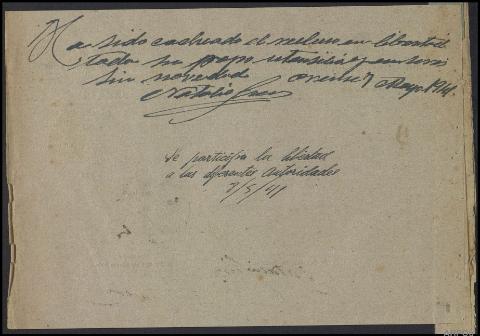 Ha sido cacheado el recluso en libertad
toda su ropa utensilios y
sin novedad Orihuela 7 Mayo 1941.
Natalio
Se participa la libertad
a las diferentes autoridades
7/5/41